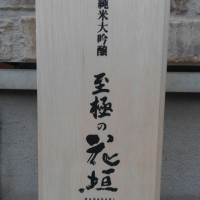 純米大吟醸
至極の
花垣
HANAGAKI